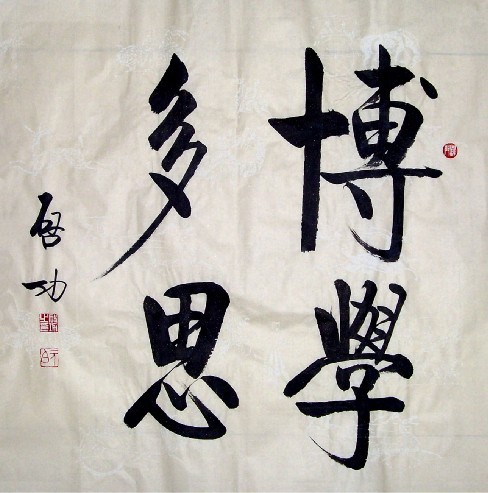 博學
多思
啓功